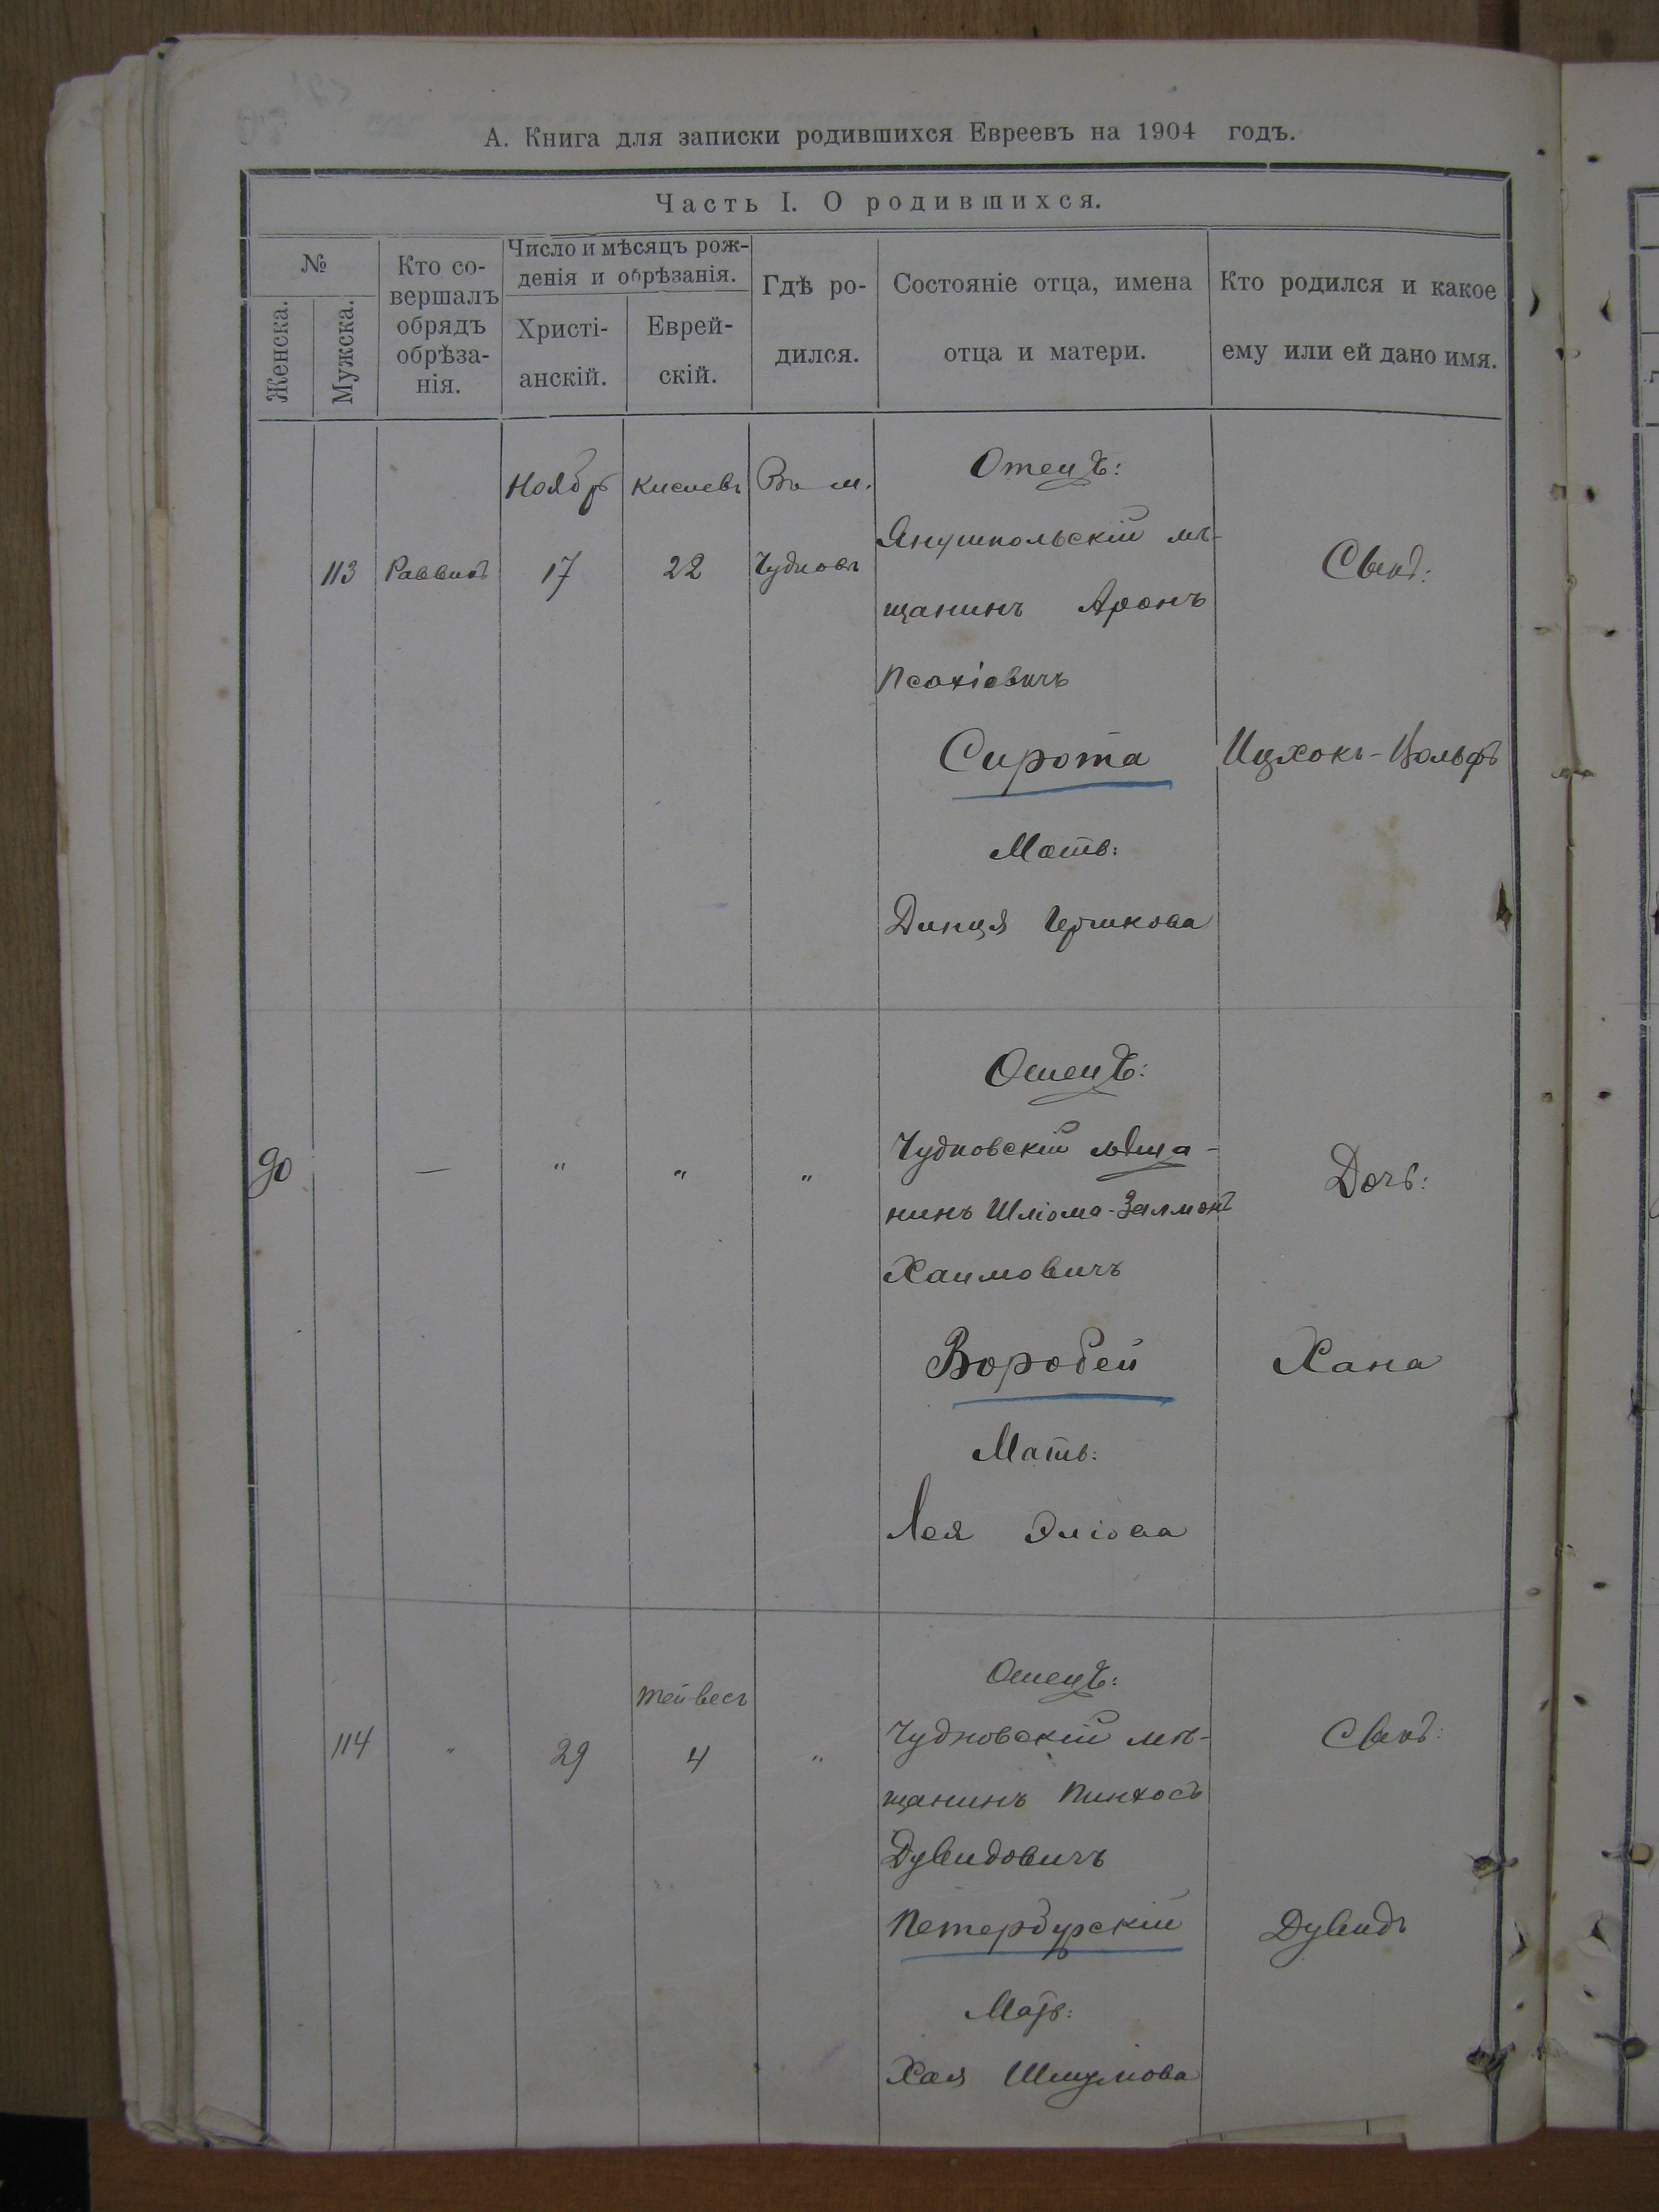 А. Книга для записки родившихся Евреевъ на 1904 годъ.
Часть I. О родившихся.
№
Женска.
Мужска.
Кто со-
вершалъ
обрядъ
обрѣза-
нія.
Число и мѣсяцъ рож-
денія и обрѣзанія.
Христі-
анскій.
Еврей-
скій.
Гдѣ ро-
дился.
Состояніе отца, имена
отца и матери.
Кто родился и какое
ему или ей дано имя.
113
Раввинъ
Ноябрь
17
Кислевъ
22
Въ м.
Чудновъ
Отецъ:
Янушпольскій мѣ-
щанинъ Аронъ
Псахіевичъ
Сирота
Мать:
Динця Гершкова
Сынъ:
Ицхокъ-Вольфъ
90
—
"
"
"
Отецъ:
Чудновскій мѣща-
нинъ Шліома-Залмонъ
Хаимовичъ
Воробей
Мать:
Лея Эліова
Дочь:
Хана
114
"
29
Тейвесъ
4
"
Отецъ:
Чудновскій мѣ-
щанинъ Пинхосъ
Дувидовичъ
Петербурскій
Мать:
Хая Шмулiова
Сынъ:
Дувидъ